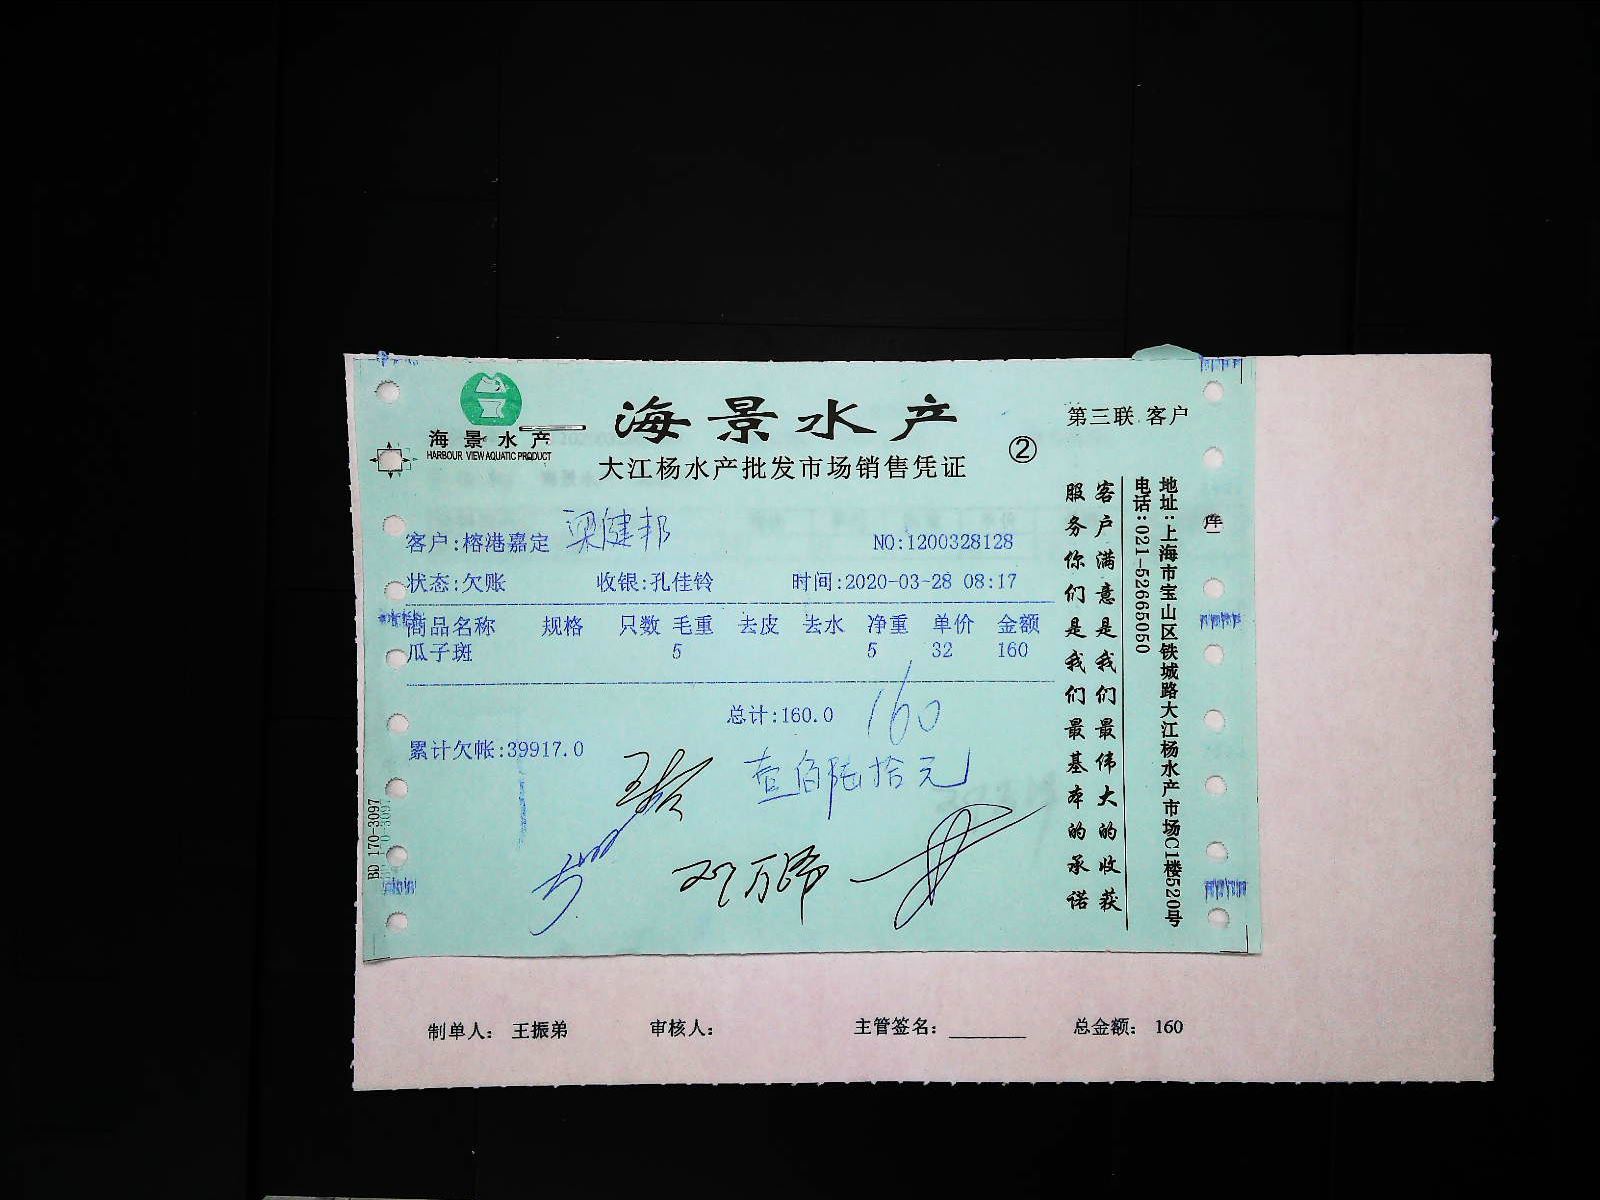 海景水产
HARBOUR VIEW AQUATIC PRODUCT
海景水产
大江杨水产批发市场销售凭证
②
第三联 客户
客户:榕港嘉定 梁健邦
NO:1200328128
状态:欠账 收银:孔佳铃 时间:2020-03-28 08:17
商品名称 规格 只数 毛重 去皮 去水 净重 单价 金额
瓜子斑 5 5 32 160
总计:160.0 160
累计欠帐:39917.0
壹佰陆拾元
客户满意是我们最伟大的收获
服务你们是我们最基本的承诺
地址:上海市宝山区铁城路大江杨水产市场C1楼520号
电话:021-52665050
BD 170-3097
制单人: 王振弟 审核人: 主管签名: 总金额: 160